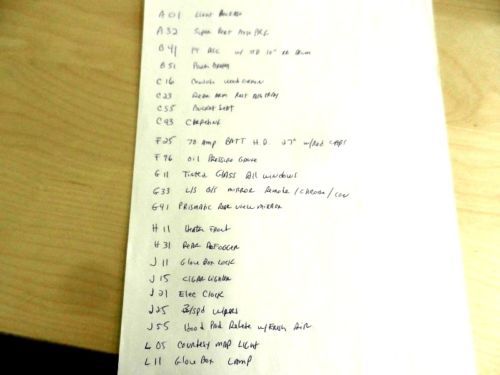 A 01
A 32 Super
B 41 Fr Disc w/ 10" RR Drum
B 51 Power Brakes
C 16 Console
C 23 Rear Arm Rest
C 55 Bucket Seat
C 93 Carpeting
F 25 70 Amp BATT H.D. 27" w/Red CAPS
F 96 Oil Pressure Gauge
G 11 Tinted GLASS All windows
G 33 L/S O/S MIRROR Remote / Chrome / Con
G 41 PRISMATIC Rear view MIRROR
H 11 Heater Front
H 31 REAR DeFogger
J 11 Glove Box Lock
J 15 CIGAR LIGHTER
J 21 Elec Clock
J 25 3/spd wipers
J 55 Hood Pad Delete w/Fresh AIR
L 05 Courtesy MAP Light
L 11 Glove Box LAMP